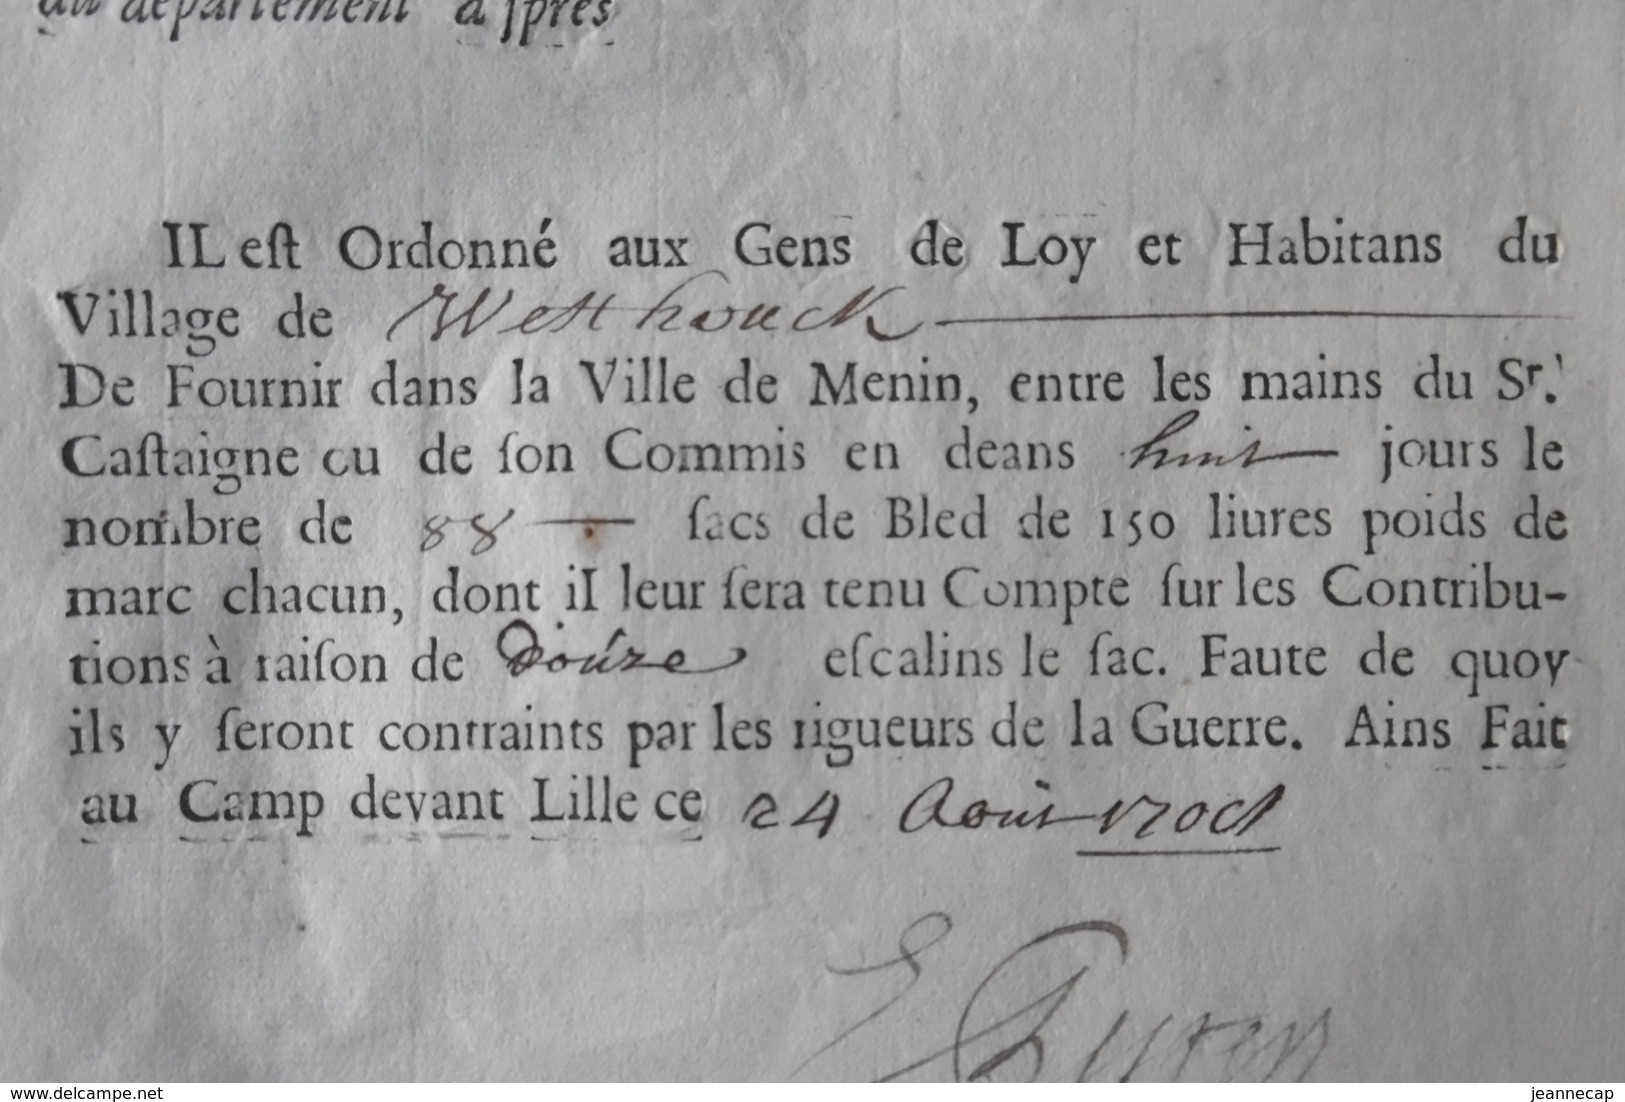 du département à Jpres
IL eſt Ordonné aux Gens de Loy et Habitans du
Village de Westhouck
De Fournir dans la Ville de Menin, entre les mains du Sr.
Caſtaigne ou de ſon Commis en deans huit jours le
nombre de 88 ſacs de Bled de 150 liures poids de
marc chacun, dont il leur ſera tenu Compte ſur les Contribu-
tions à raiſon de Doúze eſcalins le ſac. Faute de quoy
ils y ſeront contraints par les rigueurs de la Guerre. Ains Fait
au Camp devant Lille ce 24 Aoûst
© Delcampe.net
jeannecap